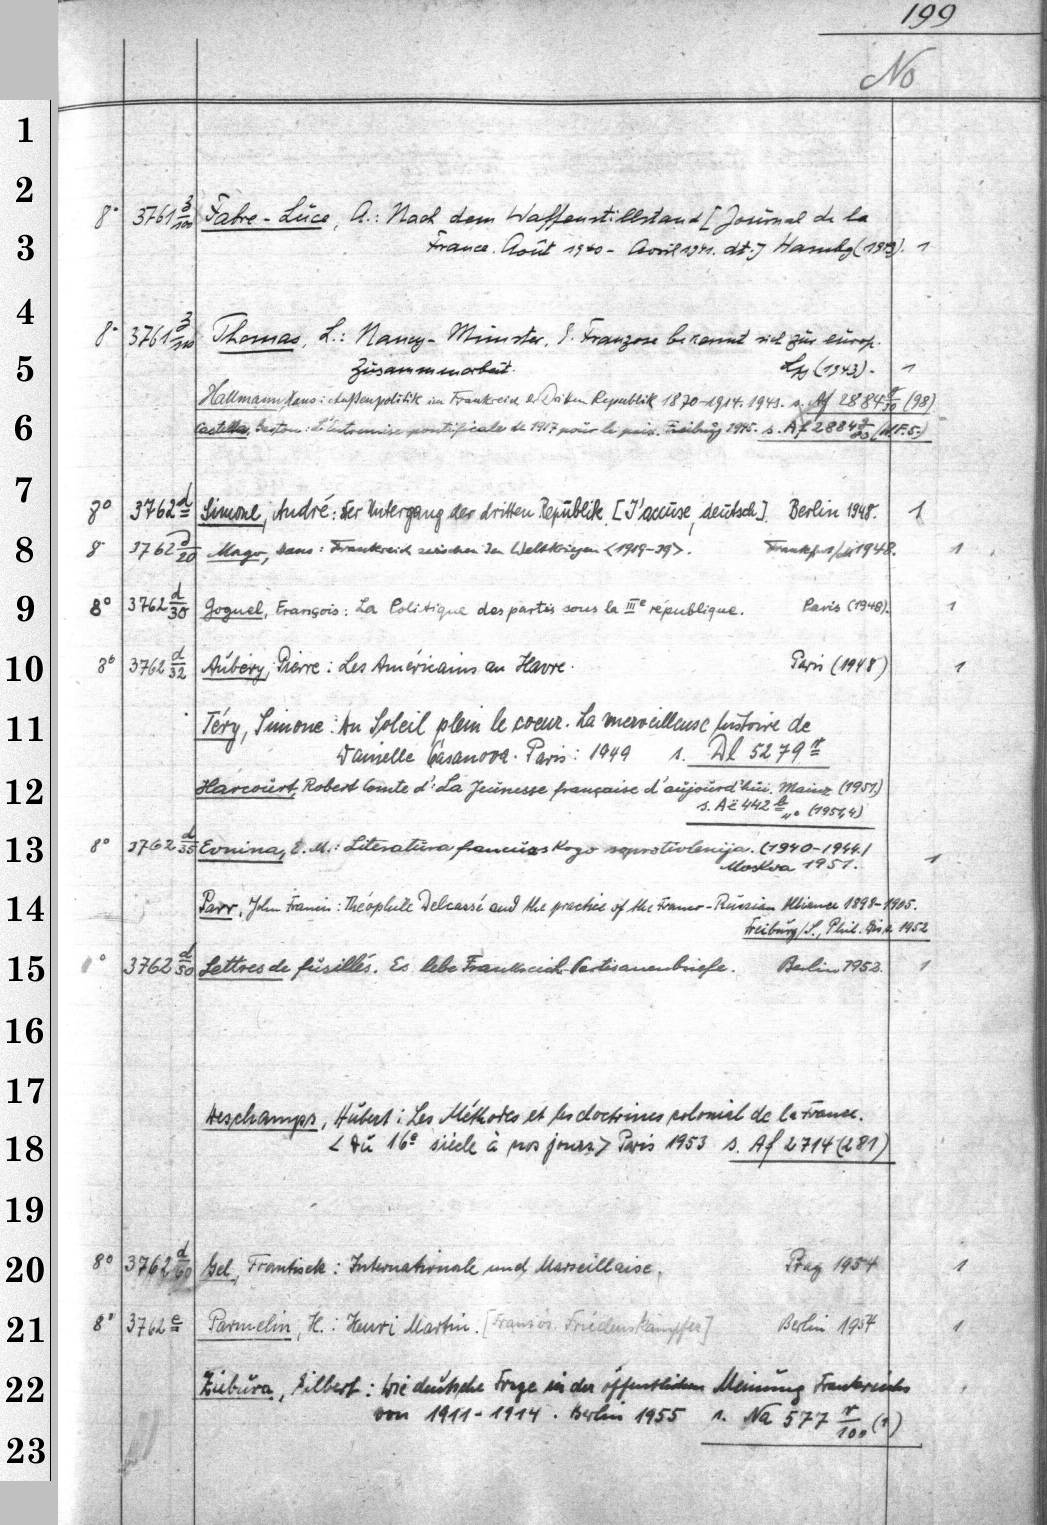 199
No
1
2
8° 3761 3/100 Fabre-Luce, A.: Nach dem Waffenstillstand [Journal de la
3
France. Août 1940 - Avril 1941. dt.] Hambg (1943). 1
4
8° 3761 3/110 Thomas, L.: Nancy-Münster. E. Franzose bekennt sich zur europ.
5
Zusammenarbeit. Lpz (1943). 1
Hallmann, Hans: Außenpolitik in Frankreich d. Dritten Republik 1870-1914. 1943. s. Af 2884 (98)
6
Castella, Gaston: L'entremise pontificale de 1917 pour la paix. Freiburg 1945. s. Af 2884
7
8° 3762 d Simone, André: Der Untergang der dritten Republik. [J'accuse, deutsch]. Berlin 1948. 1
8
8° 3762 d/20 Mago, Hans: Frankreich zwischen den Weltkriegen <1919-39>. Frankfurt 1948. 1
9
8° 3762 d/30 Goguel, François: La Politique des partis sous la IIIe république. Paris (1948). 1
10
8° 3762 d/32 Aubéry, Pierre: Les Américains au Havre. Paris (1948) 1
11
Téry, Simone: Au Soleil plein le coeur. La merveilleuse histoire de
Danielle Casanova. Paris: 1949 s. Dl 5279
12
Harcourt, Robert Comte d': La Jeunesse française d'aujourd'hui. Mainz (1951)
s. Az 442 (1951,4)
13
8° 3762 d/35 Evnina, E. M.: Literatura francuzskogo soprotivlenija. (1940-1944.)
Moskva 1951. 1
14
Parr, John Francis: Théophile Delcassé and the practice of the Franco-Russian Alliance 1898-1905.
Freiburg/S., Phil. Diss. 1952
15
8° 3762 d/50 Lettres de fusillés. Es lebe Frankreich. Partisanenbriefe. Berlin 1953. 1
16
17
Deschamps, Hubert: Les Méthodes et les doctrines colonial de la France.
18
<Du 16e siècle à nos jours> Paris 1953 s. Af 2714 (281)
19
20
8° 3762 d/60 Gel, František: Internationale und Marseillaise. Prag 1954 1
21
8° 3762 e Parmelin, H.: Henri Martin. [Französ. Friedenskämpfer] Berlin 1954 1
22
Ziebura, Gilbert: Die deutsche Frage in der öffentlichen Meinung Frankreichs
von 1911-1914. Berlin 1955 s. Na 577 r/100 (1)
23